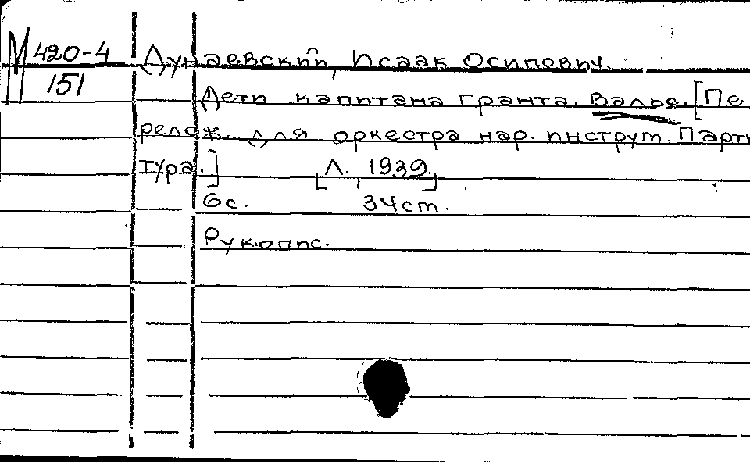 М 420-4
151
Дунаевский, Исаак Осипович.
Дети капитана Гранта. Вальс. [Пе-
релож. для оркестра нар. инструт. Парти
тура.] [Л. 1939]
6с. 34ст.
Рукопис.